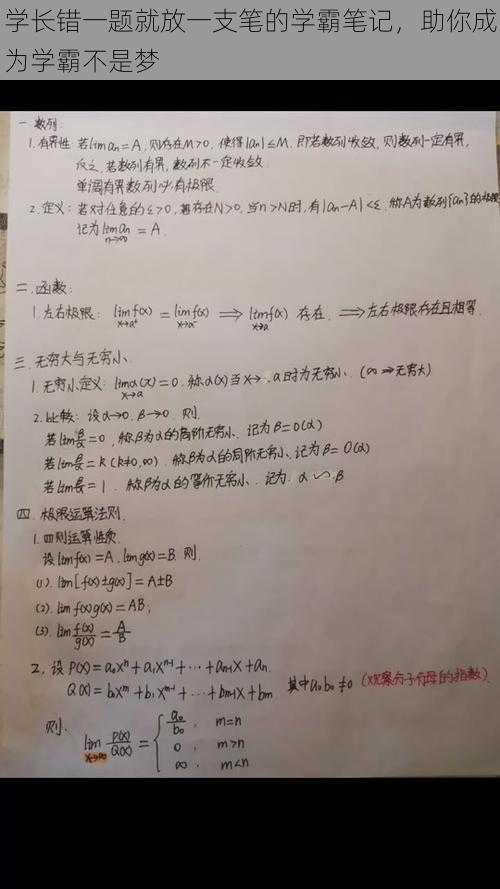 学长错一题就放一支笔的学霸笔记，助你成
为学霸不是梦
一 数列:
1. 有界性: 若lim an = A, 则存在M>0, 使得|an|≤M. 即若数列收敛, 则数列一定有界,
反之, 若数列有界, 数列不一定收敛.
单调有界数列必有极限.
2. 定义: 若对任意的ε>0, 存在N>0, 当n>N时, 有|an-A|<ε. 称A为数列{an}的极限
记为lim an = A.
n→∞
二. 函数:
1. 左右极限: lim f(x) = lim f(x) ⟹ lim f(x) 存在. ⟹左右极限存在且相等.
x→a⁺ x→a⁻ x→a
三. 无穷大与无穷小.
1. 无穷小定义: lim α(x) = 0. 称α(x)当x→a时为无穷小. (∞ ⇒无穷大)
x→a
2. 比较: 设α→0. β→0. 则.
若lim β/α = 0, 称β为α的高阶无穷小. 记为β=o(α)
若lim β/α = k (k≠0,∞). 称β为α的同阶无穷小, 记为β=O(α)
若lim β/α = 1. 称β为α的等价无穷小. 记为. α∽β
四. 极限运算法则.
1. 四则运算性质.
设lim f(x)=A, lim g(x)=B. 则.
(1). lim[f(x)±g(x)] = A±B
(2). lim f(x)g(x) = AB;
(3). lim f(x)/g(x) = A/B
2. 设 P(x) = a₀xⁿ + a₁xⁿ⁻¹ + ⋯ + aₙ₋₁x + aₙ
Q(x) = b₀xᵐ + b₁xᵐ⁻¹ + ⋯ + bₘ₋₁x + bₘ 其中a₀b₀≠0 (观察分子分母的指数)
则. lim P(x)/Q(x) = { a₀/b₀, m=n
x→∞ 0, m>n
∞, m<n